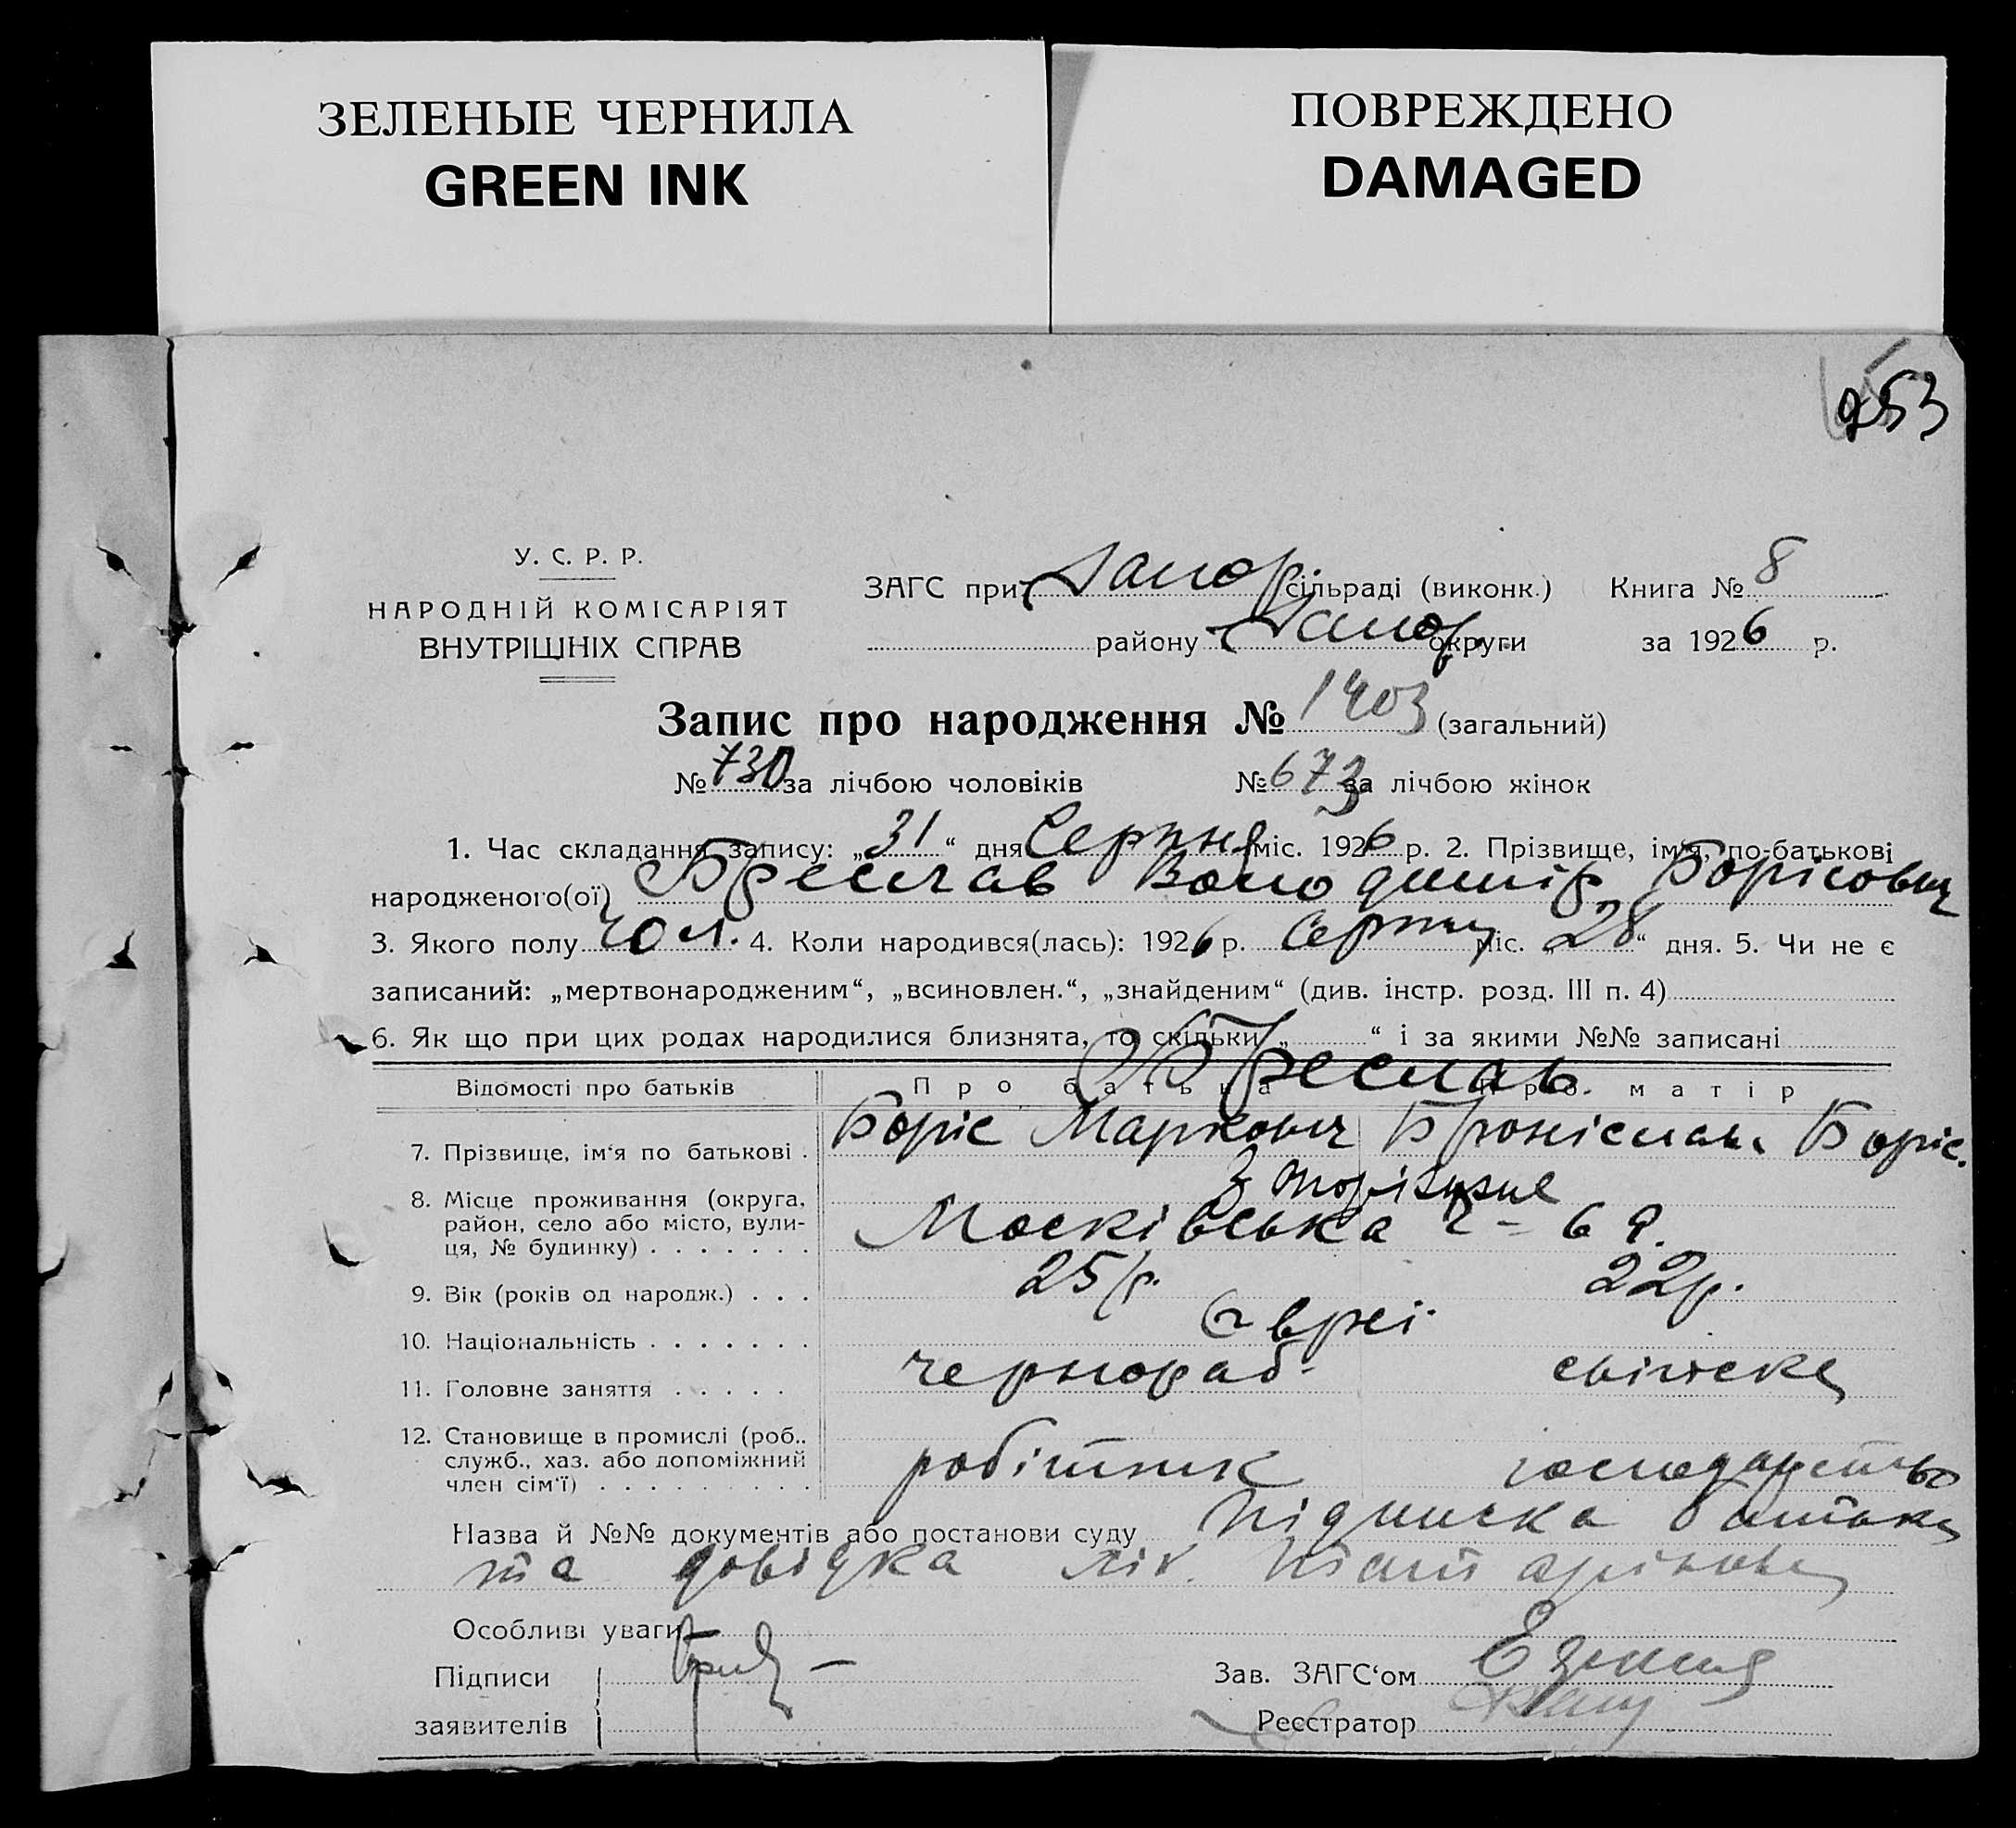 ЗЕЛЕНЫЕ ЧЕРНИЛА
GREEN INK
ПОВРЕЖДЕНО
DAMAGED
253
У. С. Р. Р.
НАРОДНІЙ КОМІСАРІЯТ
ВНУТРІШНІХ СПРАВ
ЗАГС при Запор. сільраді (виконк.) Книга № 8
району Запор. округи за 1926 р.
Запис про народження № 1403 (загальний)
№ 730 за лічбою чоловіків № 673 за лічбою жінок
1. Час складання запису: „31“ дня Серпня міс. 1926 р. 2. Прізвище, ім'я, по-батькові
народженого(ої) Бреслав Володимір Борісович
3. Якого полу чол. 4. Коли народився(лась): 1926 р. Серпня міс. „28“ дня. 5. Чи не є
записаний: „мертвонародженим“, „всиновлен.“, „знайденим“ (див. інстр. розд. III п. 4)
6. Як що при цих родах народилися близнята, то скільки „ “ і за якими №№ записані
Відомості про батьків Про батька Про матір
Бреслав
7. Прізвище, ім'я по батькові . Боріс Маркович Броніслава Боріс.
8. Місце проживання (округа, район, село або місто, вули- ця, № будинку) . . . . . . . Запоріжжя
Московська 69.
9. Вік (років од народж.) . . . 25 р. 22 р.
10. Національність . . . . . . . Євреї
11. Головне заняття . . . . . чернораб.
12. Становище в промислі (роб., служб., хаз. або допоміжний член сім'ї) . . . . . . . . . робітник господарство
Назва й №№ документів або постанови суду Підписка батька
та довідка лік.
Особливі уваги
Підписи
заявителів
Зав. ЗАГС'ом
Реєстратор